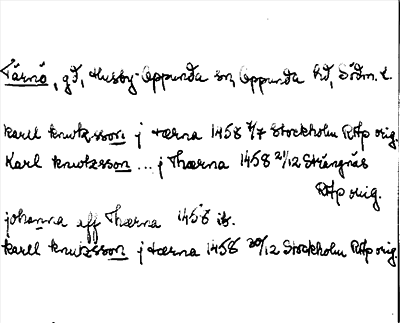 Tärnö, gd, Husby-Oppunda sn, Oppunda hd, Södm. l.
karll knutzsson j tærna 1458 7/7 Stockholm RAp orig.
Karl knutzsson ... j Thærna 1458 21/12 Strängnäs
RAp orig.
johanna aff Thærna 1458 ib.
karll knutzsson j tærna 1458 20/12 Stockholm RAp orig.